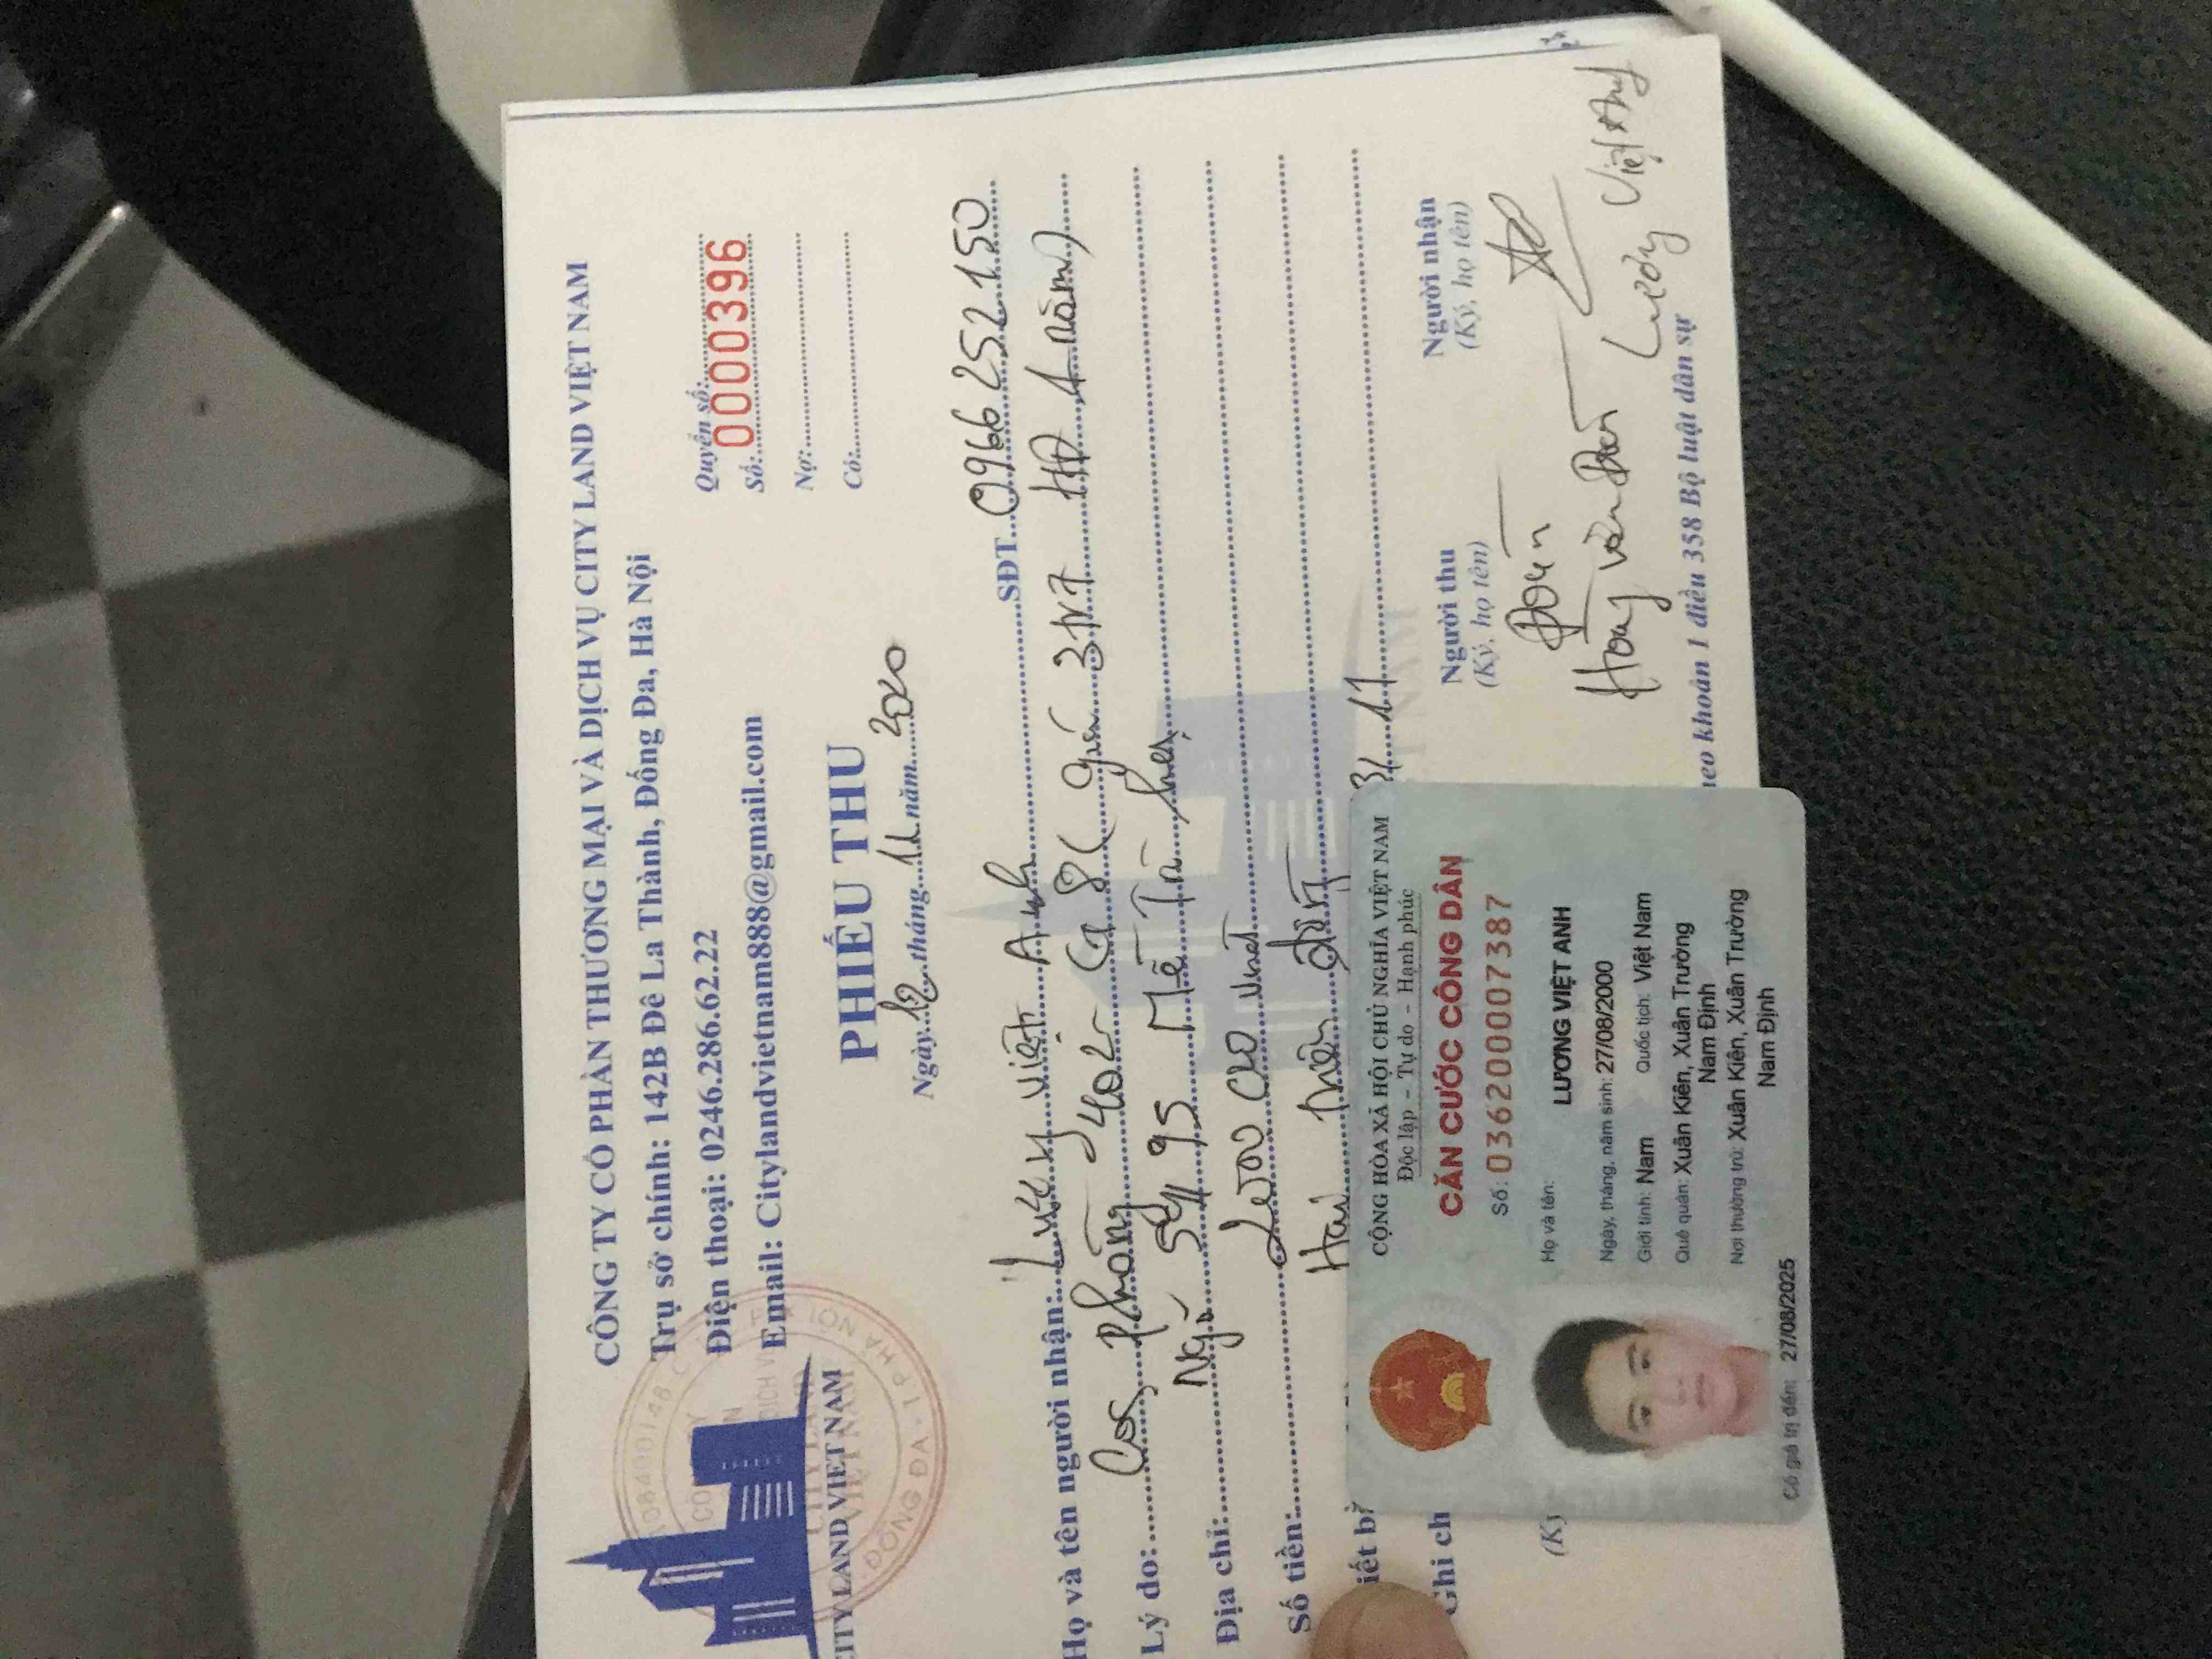 CÔNG TY CỔ PHẦN THƯƠNG MẠI VÀ DỊCH VỤ CITY LAND VIỆT NAM
Trụ sở chính: 142B Đê La Thành, Đống Đa, Hà Nội
Điện thoại: 0246.286.62.22
Email: Citylandvietnam888@gmail.com
CITY LAND VIET NAM
Quyển số:
Số: 0000396
Nợ:
Có:
PHIẾU THU
Ngày 12 tháng 11 năm 2020
Họ và tên người nhận: Lương Việt Anh SĐT 0966252150
Lý do: Cọc phòng 402 Ca 8 ( giá 3tr7 HĐ 1 năm)
Địa chỉ: Ngõ 54 95 Mễ Trì hạ
Số tiền: 2.000.000
iết bằ Hai triệu đồng
Ghi ch 3/ 11
Người thu
(Ký, họ tên)
Người nhận
(Ký, họ tên)
(Ký
Đoàn
Hoàng văn Đoàn
Lương Việt Anh
heo khoản 1 điều 358 Bộ luật dân sự
CỘNG HÒA XÃ HỘI CHỦ NGHĨA VIỆT NAM
Độc lập - Tự do - Hạnh phúc
CĂN CƯỚC CÔNG DÂN
Số: 036200007387
Họ và tên:
LƯƠNG VIỆT ANH
Ngày, tháng, năm sinh: 27/08/2000
Giới tính: Nam Quốc tịch: Việt Nam
Quê quán: Xuân Kiên, Xuân Trường
Nam Định
Nơi thường trú: Xuân Kiên, Xuân Trường
Nam Định
Có giá trị đến: 27/08/2025